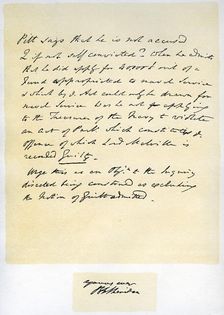 Pitt says that he is not accused
& if not self convicted? When he admits
that he did apply for 40000£ out of a
fund appropriated to naval service
& which by Act could only be drawn for
naval service was he not applying
to the Treasurer of the Navy to violate
an act of Parlt which constitutes
offence of which Lord Melville is
recorded Guilty.
Urge this as an Objn to the Inquiry
directed being construed as excluding
the Notion of Guilt admitted.
yours ever
RBSheridan